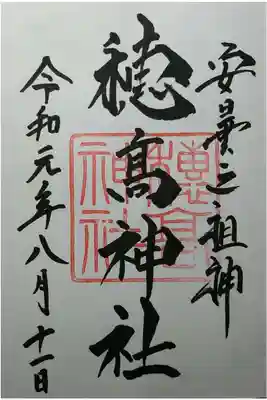 安曇之祖神
穂髙神社
令和元年八月十一日
穂高神社